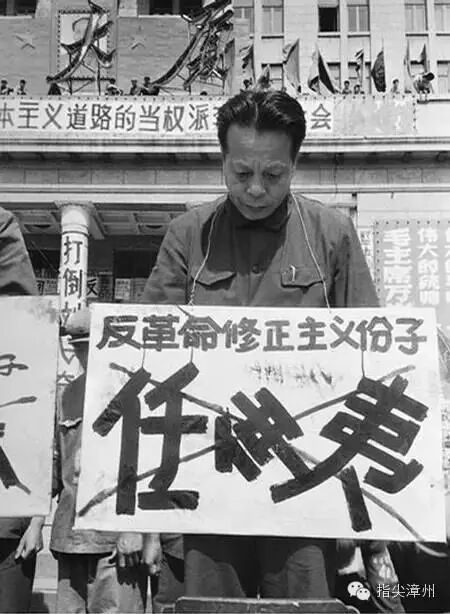 本主义道路的当权派
会
打倒
伟大的统帅
毛主席万
反革命修正主义份子
任仲夷
指尖漳州